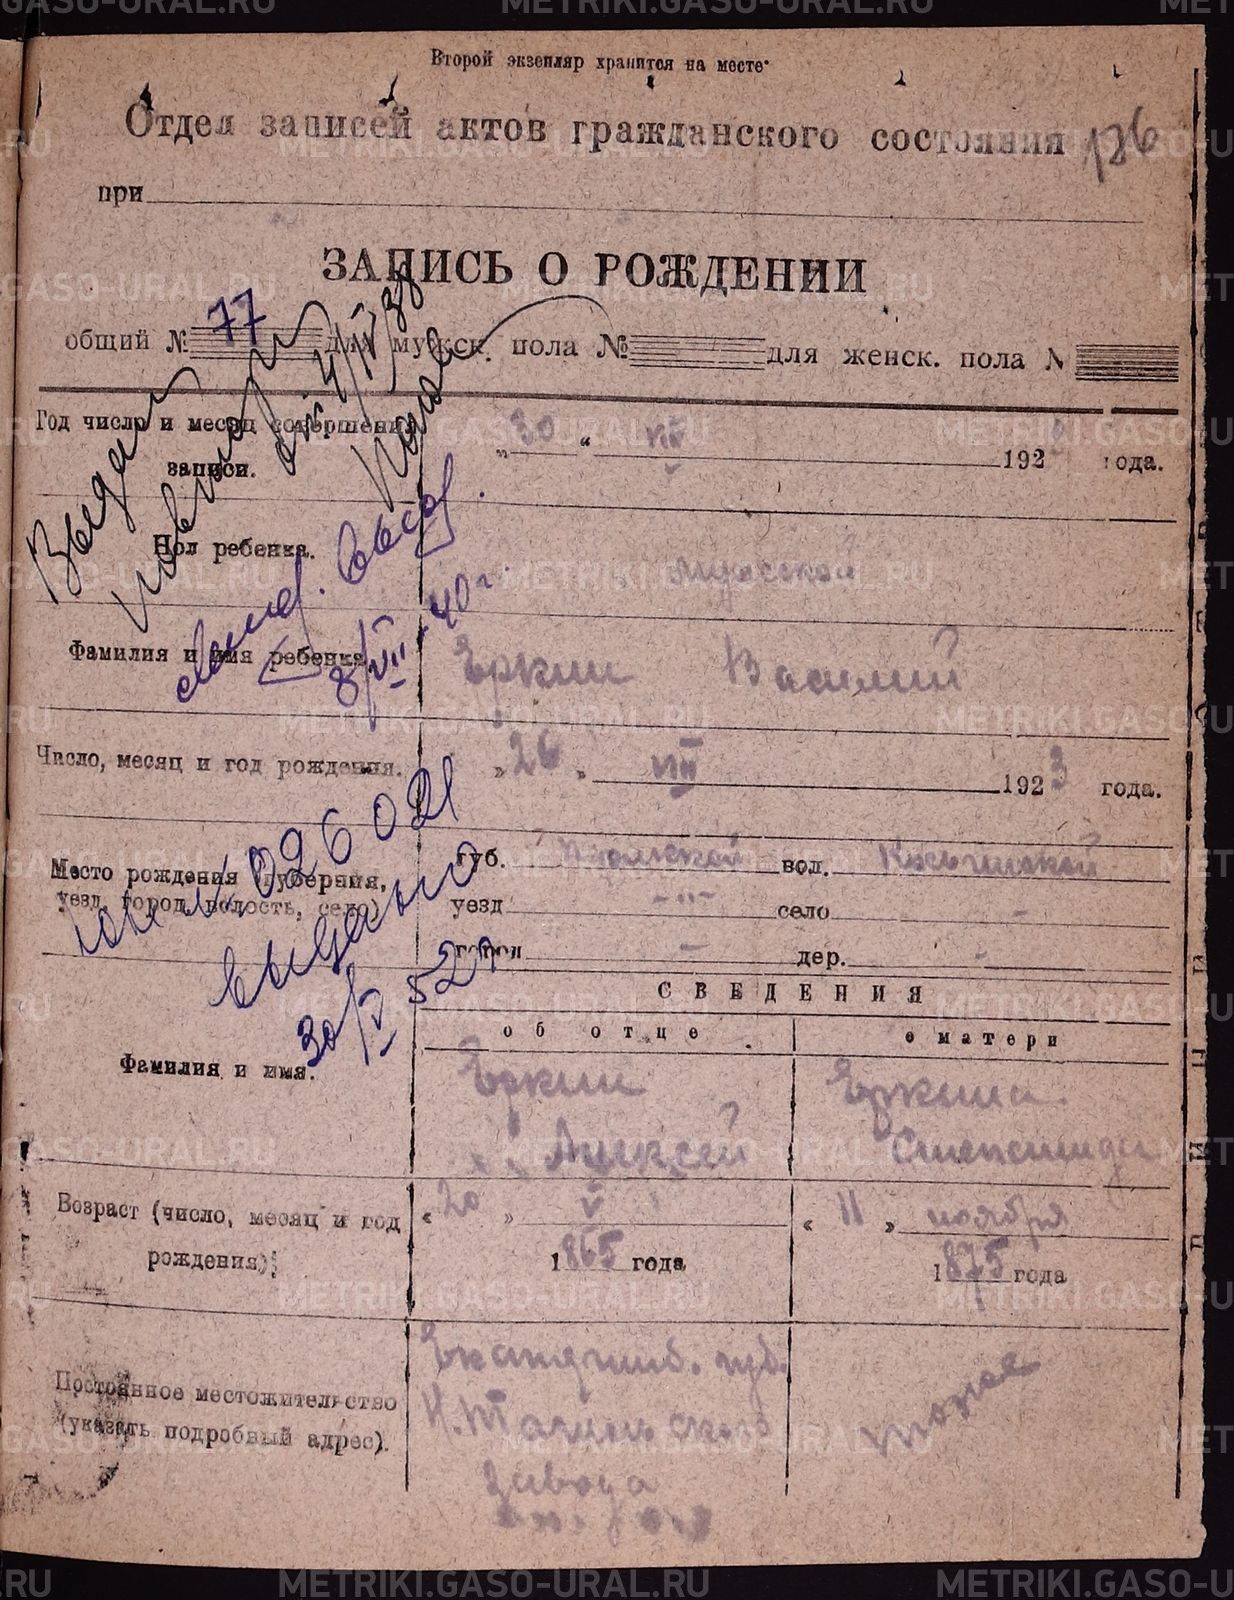 Второй экземпляр хранится на месте
Отдел записей актов гражданского состояния 126
при
ЗАПИСЬ О РОЖДЕНИИ
общий № 77 для мужск. пола № для женск. пола №
Год число и месяц совершения записи.
„30“ VII 192 года.
Пол ребенка.
мужской
Фамилия и имя ребенка
Еркин Василий
Число, месяц и год рождения.
„26„ VII 1923 года.
Место рождения (губерния, уезд, город, волость, село)
губ. вол.
уезд -"- село -
город - дер. -
СВЕДЕНИЯ
об отце
о матери
Фамилия и имя.
Еркин Алексей
Еркина
Возраст (число, месяц и год рождения)
«20» V 1865 года
«11» ноября 1875 года
Постоянное местожительство (указать подробный адрес).
Екатеринб. губ.
Н. Тагильского
завода
тоже
Выдан
4/IV 38
8/VII-40 г.
026021
выдано
30/V 52 г
METRIKI.GASO-URAL.RU